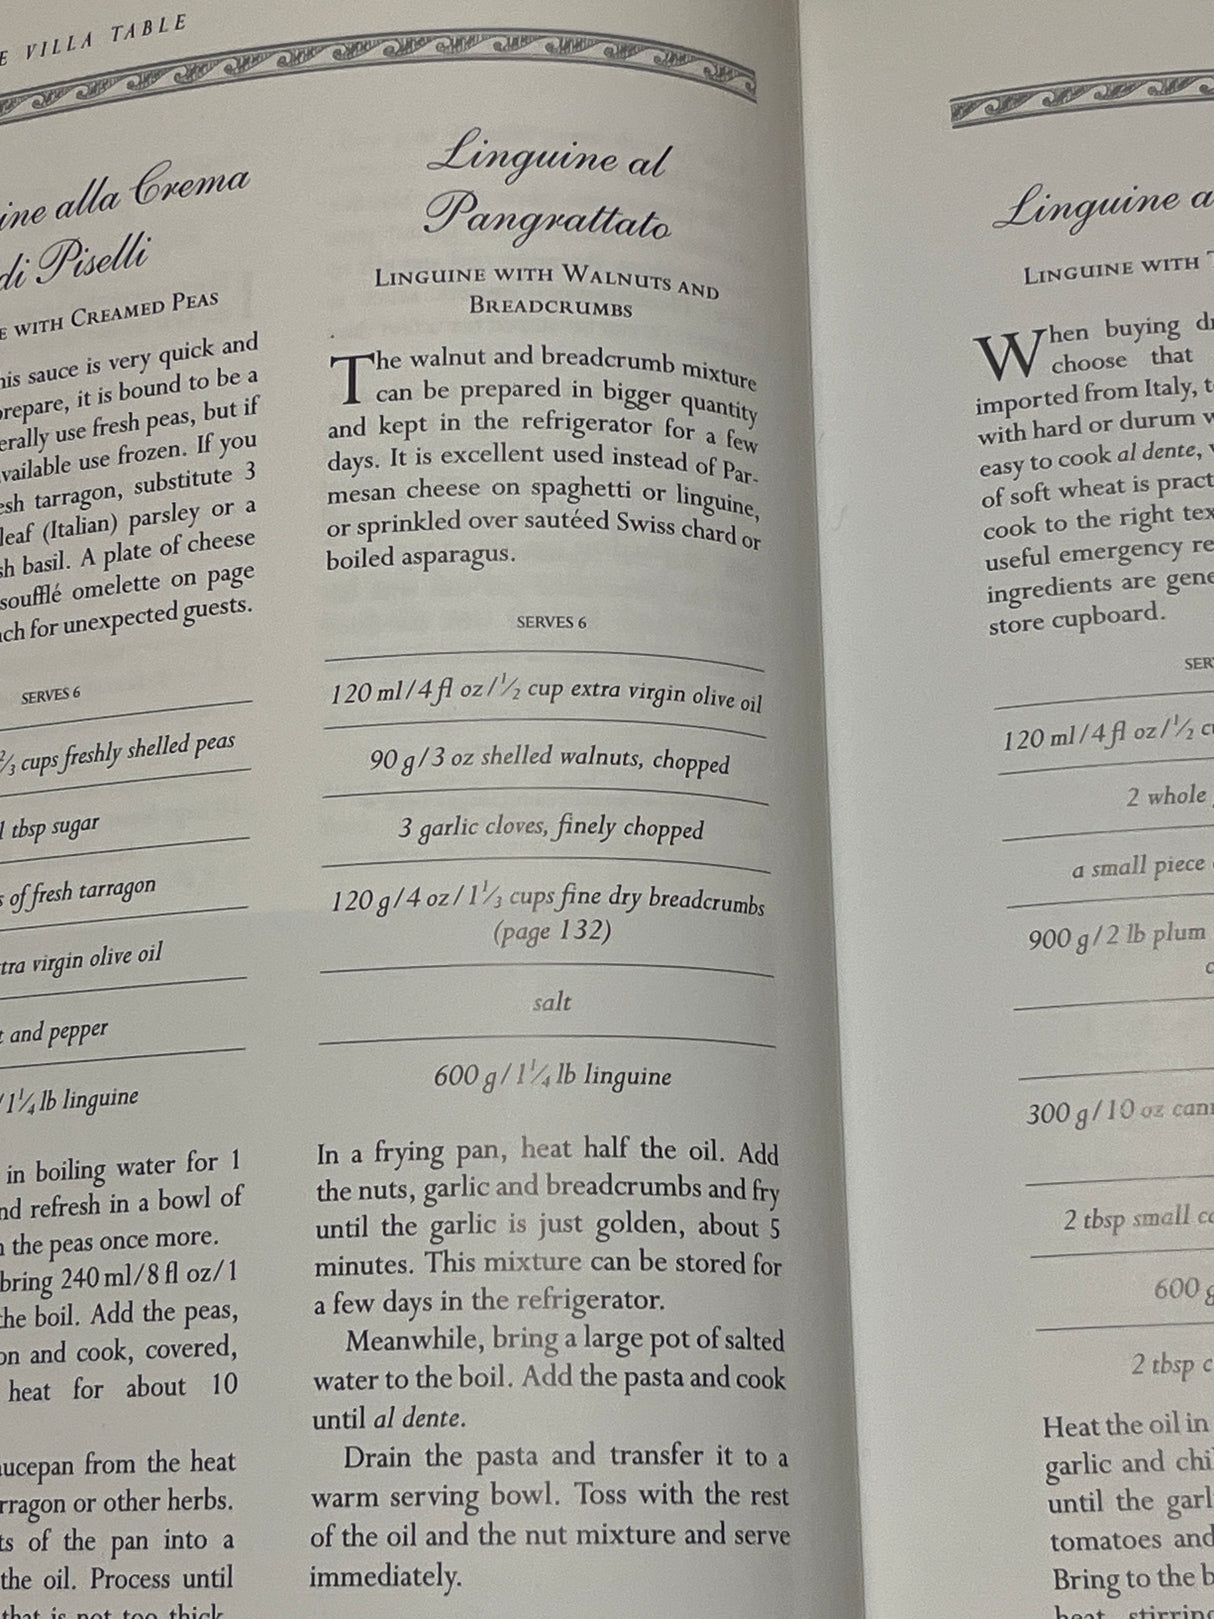 VILLA TABLE
alla Crema
di Piselli
WITH CREAMED PEAS
sauce is very quick and
it is bound to be a
use fresh peas, but if
use frozen. If you
tarragon, substitute 3
leaf (Italian) parsley or a
basil. A plate of cheese
soufflé omelette on page
for unexpected guests.
SERVES 6
⅔ cups freshly shelled peas
tbsp sugar
of fresh tarragon
virgin olive oil
and pepper
/1¼ lb linguine
in boiling water for 1
refresh in a bowl of
the peas once more.
bring 240 ml/8 fl oz/1
boil. Add the peas,
and cook, covered,
heat for about 10
from the heat
or other herbs.
of the pan into a
the oil. Process until
that is not too thick
Linguine al
Pangrattato
LINGUINE WITH WALNUTS AND
BREADCRUMBS
The walnut and breadcrumb mixture
can be prepared in bigger quantity
and kept in the refrigerator for a few
days. It is excellent used instead of Par-
mesan cheese on spaghetti or linguine,
or sprinkled over sautéed Swiss chard or
boiled asparagus.
SERVES 6
120 ml/4 fl oz/½ cup extra virgin olive oil
90 g/3 oz shelled walnuts, chopped
3 garlic cloves, finely chopped
120 g/4 oz/1⅓ cups fine dry breadcrumbs
(page 132)
salt
600 g/1¼ lb linguine
In a frying pan, heat half the oil. Add
the nuts, garlic and breadcrumbs and fry
until the garlic is just golden, about 5
minutes. This mixture can be stored for
a few days in the refrigerator.
Meanwhile, bring a large pot of salted
water to the boil. Add the pasta and cook
until al dente.
Drain the pasta and transfer it to a
warm serving bowl. Toss with the rest
of the oil and the nut mixture and serve
immediately.
Linguine
LINGUINE WITH
When buying
choose that
imported from Italy,
with hard or durum
easy to cook al dente,
of soft wheat is
cook to the right
useful emergency
ingredients are
store cupboard.
120 ml/4 fl oz/½
2 whole
a small piece
900 g/2 lb plum
300 g/10 oz
2 tbsp small
600 g
2 tbsp
Heat the oil in
garlic and
until the
tomatoes and
Bring to the
heat, stirring